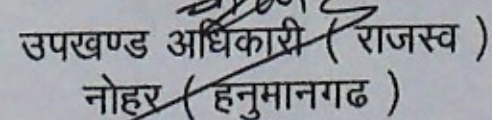 उपखण्ड अधिकारी ( राजस्व )
नोहर ( हनुमानगढ )